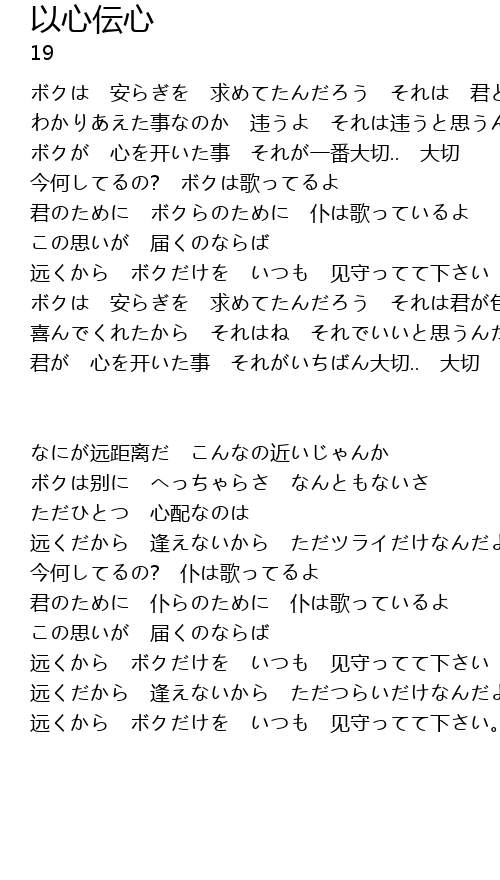 以心伝心
19
ボクは　安らぎを　求めてたんだろう　それは　君と
わかりあえた事なのか　違うよ　それは違うと思うん
ボクが　心を开いた事　それが一番大切..　大切
今何してるの?　ボクは歌ってるよ
君のために　ボクらのために　仆は歌っているよ
この思いが　届くのならば
远くから　ボクだけを　いつも　见守ってて下さい
ボクは　安らぎを　求めてたんだろう　それは君が
喜んでくれたから　それはね　それでいいと思うんだ
君が　心を开いた事　それがいちばん大切..　大切
なにが远距离だ　こんなの近いじゃんか
ボクは别に　へっちゃらさ　なんともないさ
ただひとつ　心配なのは
远くだから　逢えないから　ただツライだけなんだよ
今何してるの?　仆は歌ってるよ
君のために　仆らのために　仆は歌っているよ
この思いが　届くのならば
远くから　ボクだけを　いつも　见守ってて下さい
远くだから　逢えないから　ただつらいだけなんだよ
远くから　ボクだけを　いつも　见守ってて下さい。